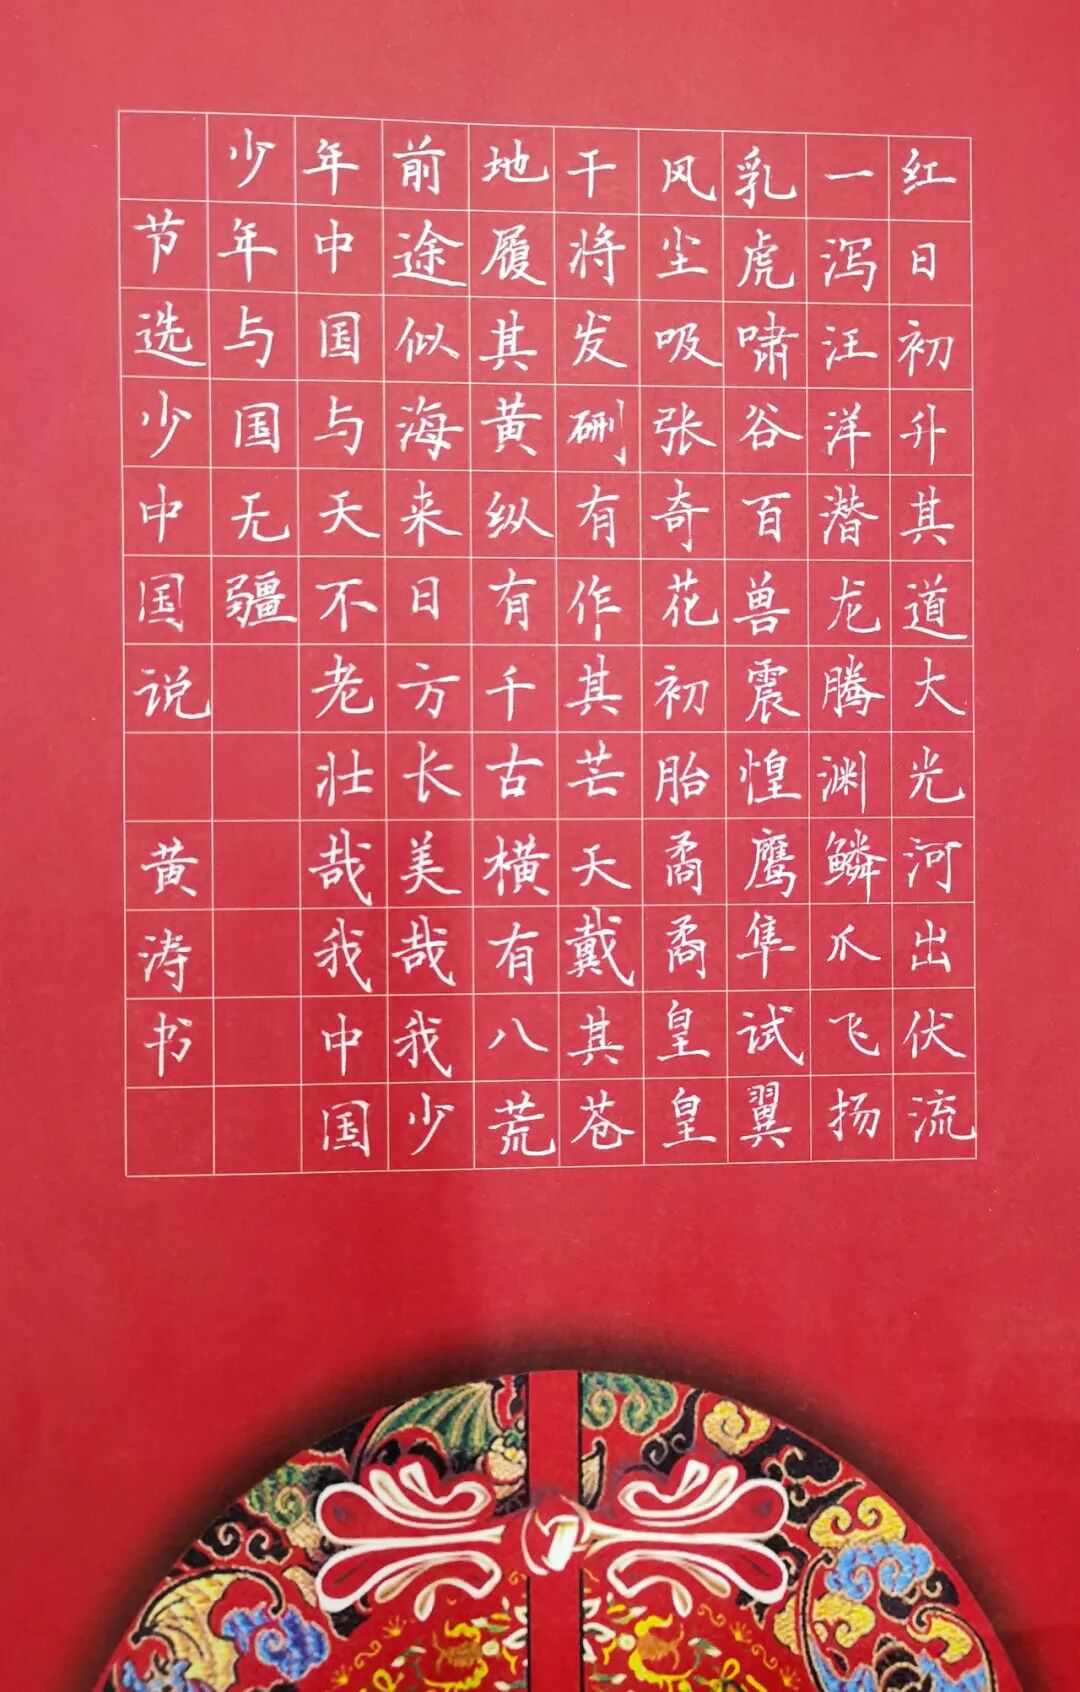 红日初升其道大光河出伏流
一泻汪洋潜龙腾渊鳞爪飞扬
乳虎啸谷百兽震惶鹰隼试翼
风尘吸张奇花初胎矞矞皇皇
干将发硎有作其芒天戴其苍
地履其黄纵有千古横有八荒
前途似海来日方长美哉我少
年中国与天不老壮哉我中国
少年与国无疆
节选少中国说 黄涛书